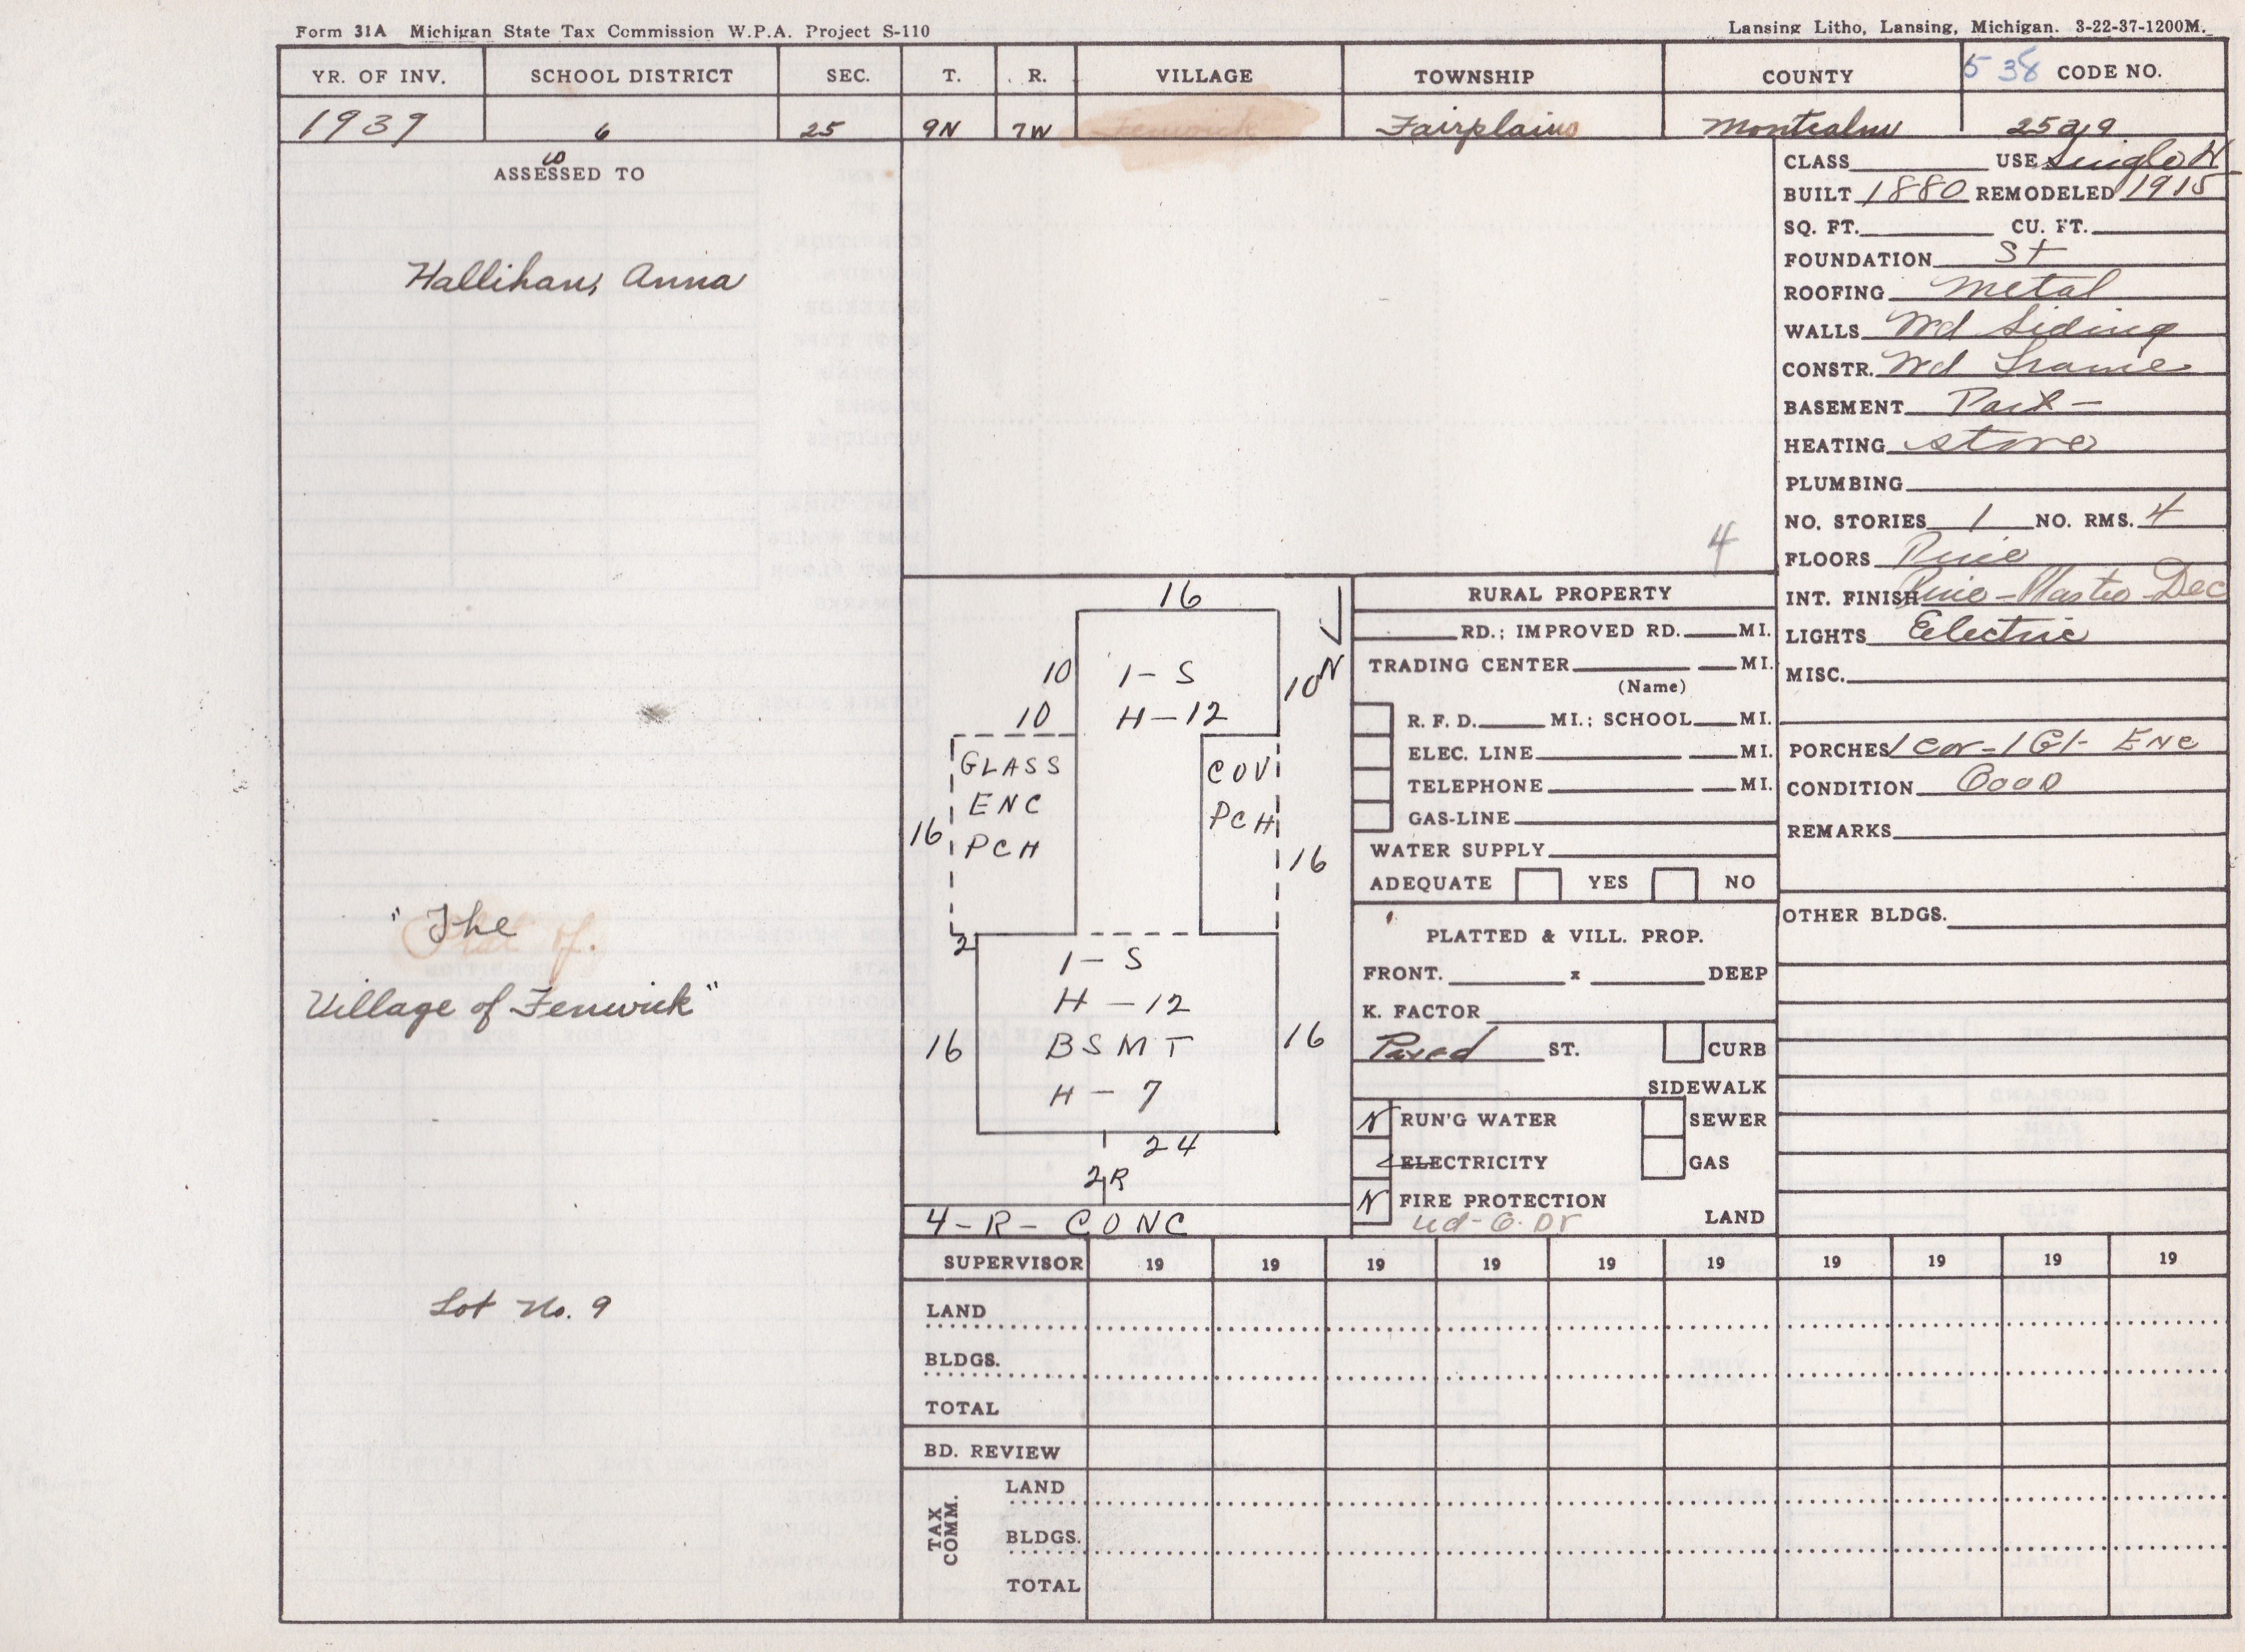 Form 31A Michigan State Tax Commission W.P.A. Project S-110
Lansing Litho, Lansing, Michigan. 3-22-37-1200M.
YR. OF INV. SCHOOL DISTRICT SEC. T. R. VILLAGE TOWNSHIP COUNTY 538 CODE NO.
1939 6 25 9N 7W Fenwick Fairplains Montcalm
ASSESSED TO
Hallihan, Anna
"The
Plat of
Village of Fenwick"
Lot No. 9
4
CLASS USE Single H
BUILT 1880 REMODELED 1915
SQ. FT. CU. FT.
FOUNDATION St
ROOFING Metal
WALLS Wd Siding
CONSTR. Wd Frame
BASEMENT Part -
HEATING Stove
PLUMBING
NO. STORIES 1 NO. RMS. 4
FLOORS Pine
INT. FINISH Pine - Plaster Dec
LIGHTS Electric
MISC.
PORCHES 1 Cov - 1 Gl - Enc
CONDITION Good
REMARKS
OTHER BLDGS.
16
10 1-S 10 N
10 H-12
GLASS COV
ENC PCH
PCH
16 16
2
1-S
H-12
16 BSMT 16
H-7
24
2R
4-R-CONC
RURAL PROPERTY
RD.; IMPROVED RD. MI.
TRADING CENTER MI.
(Name)
R. F. D. MI.; SCHOOL MI.
ELEC. LINE MI.
TELEPHONE MI.
GAS-LINE
WATER SUPPLY
ADEQUATE YES NO
PLATTED & VILL. PROP.
FRONT. x DEEP
K. FACTOR
Paved ST. CURB
SIDEWALK
N RUN'G WATER SEWER
ELECTRICITY GAS
N FIRE PROTECTION
LAND
SUPERVISOR 19 19 19 19 19 19 19 19 19 19
LAND
BLDGS.
TOTAL
BD. REVIEW
TAX COMM.
LAND
BLDGS.
TOTAL